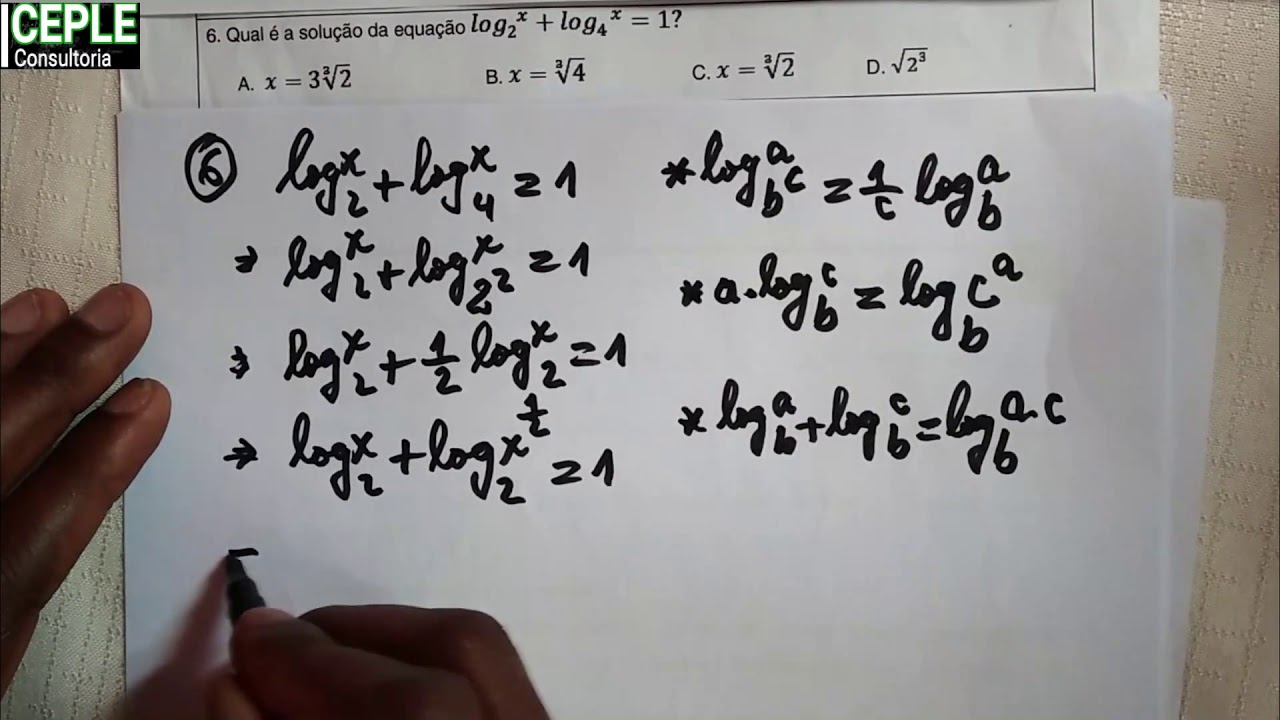 CEPLE
Consultoria
6. Qual é a solução da equação log₂ˣ + log₄ˣ = 1?
A. x = 3∛2 B. x = ∛4 C. x = ∛2 D. √2³
⑥ log₂ˣ + log₄ˣ = 1
⇒ log₂ˣ + log_{2²}^x = 1
⇒ log₂ˣ + 1/2 log₂ˣ = 1
⇒ log₂ˣ + log₂ x^{1/2} = 1
* log_{b^c}^a = 1/c log_b^a
* a · log_b^c = log_b c^a
* log_b^a + log_b^c = log_b^{a·c}